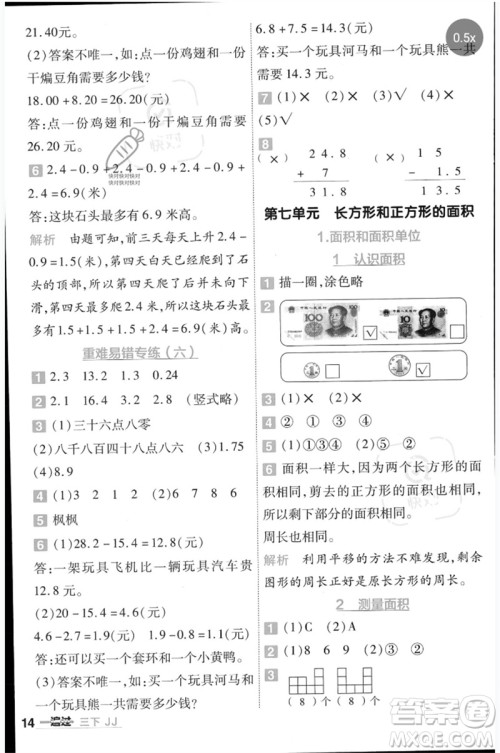 21.40元。
(2)答案不唯一,如:点一份鸡翅和一份
干煸豆角需要多少钱?
18.00+8.20=26.20(元)
答:点一份鸡翅和一份干煸豆角需要
26.20元。
6 2.4-0.9+2.4-0.9+2.4-0.9+
2.4=6.9(米)
答:这块石头最多高6.9米。
解析 由题可知,前三天每天实际爬了
(2.4-0.9)米,第四天白天已爬到石头
顶,第四天最多爬2.4米,故这块石头的
高度最多是前三天实际爬的米数+第
四天最多爬的米数,即2.4-0.9+2.4-
0.9+2.4-0.9+2.4=6.9(米)。
重难易错专练(六)
1 2.3 13.2 1.3 0.24
2 2.1 16.4 3.2 2.6 (竖式略)
3 (1)三十六点八零
(2)八千八百四十八点八六 (3)1.75
(4)8.9
4 (1)2 3 (2)1 6 7 8 8
5 枫枫
6 (1)28.2-15.4=12.8(元)
答:一架玩具飞机比一辆玩具汽车贵
12.8元。
(2)20-15.4=4.6(元)
4.6-2.7=1.9(元) 1.9-0.8=1.1(元)
答:还可以买一个套环和一个小黄鸭。
(3)答案不唯一,如:买一个玩具河马和
14 一遍过 三下 JJ
6.8+7.5=14.3(元)
答:买一个玩具河马和买一个玩具熊一共
需要14.3元。
0.5x
7 (1)× (2)× (3)√ (4)×
(5)√
8
(×) 24.8 (×) 15
+ 7 - 1.5
31.8 13.5
第七单元 长方形和正方形的面积
1.面积和面积单位
1 认识面积
1 描一圈,涂色略
2
100 √ 10
√
3 (1)× (2)×
4 ② ① ③
5 (1)①③④ (2)①
6 面积一样大,因为两个大长方形的面
积相同,剪去的正方形的面积也相同。
周长也相同。
解析 利用平移的方法不难看出,剩余
图形的周长与原长方形的周长相同。
2 测量面积
1 (1)C (2)A
2 (1)8 6 9 (2)② ③ ①
3
(8)个 (8)个